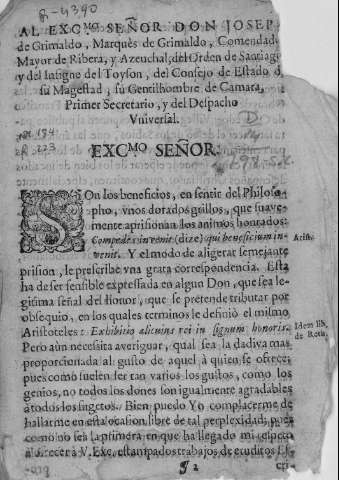 R-4390
AL EXC.MO SEÑOR DON JOSEP
de Grimaldo, Marquès de Grimaldo, Comendad.
Mayor de Ribera, y Azeuchal, del Orden de Santiag
y del Insigne del Toyson, del Consejo de Estado d
su Magestad, su Gentilhombre de Camara,
Primer Secretario, y del Despacho
Vniversal.
EXC.MO SEÑOR.
SOn los beneficios, en sentir del Philoso-
pho, vnos dorados grillos, que suave-
mente aprisionan los animos honrados:
Compedes invenit (dize) qui beneficium in-
venit. Y el modo de aligerar semejante
prision, le prescribe vna grata correspondencia. Esta
ha de ser sensible expressada en algun Don, que sea le-
gisima señal del Honor, que se pretende tributar por
obsequio, en los quales terminos le definiò el mismo
Aristoteles: Exhibitio alicuius rei in signum honoris.
Pero aùn necesita averiguar, qual sea la dadiva mas
proporcionada al gusto de aquel à quien se ofrece;
pues como suelen ser tan varios los gustos, como los
genios, no todos los dones son igualmente agradables
à todos los sugetos. Bien puedo Yo complacerme de
hallarme en esta ocasion libre de tal perplexidad, pues
como no sea la primera en que ha llegado mi respeto
à ofrecer à V. Exc. estampados trabajos de eruditos
Arist.
Idem lib.
de Reth.